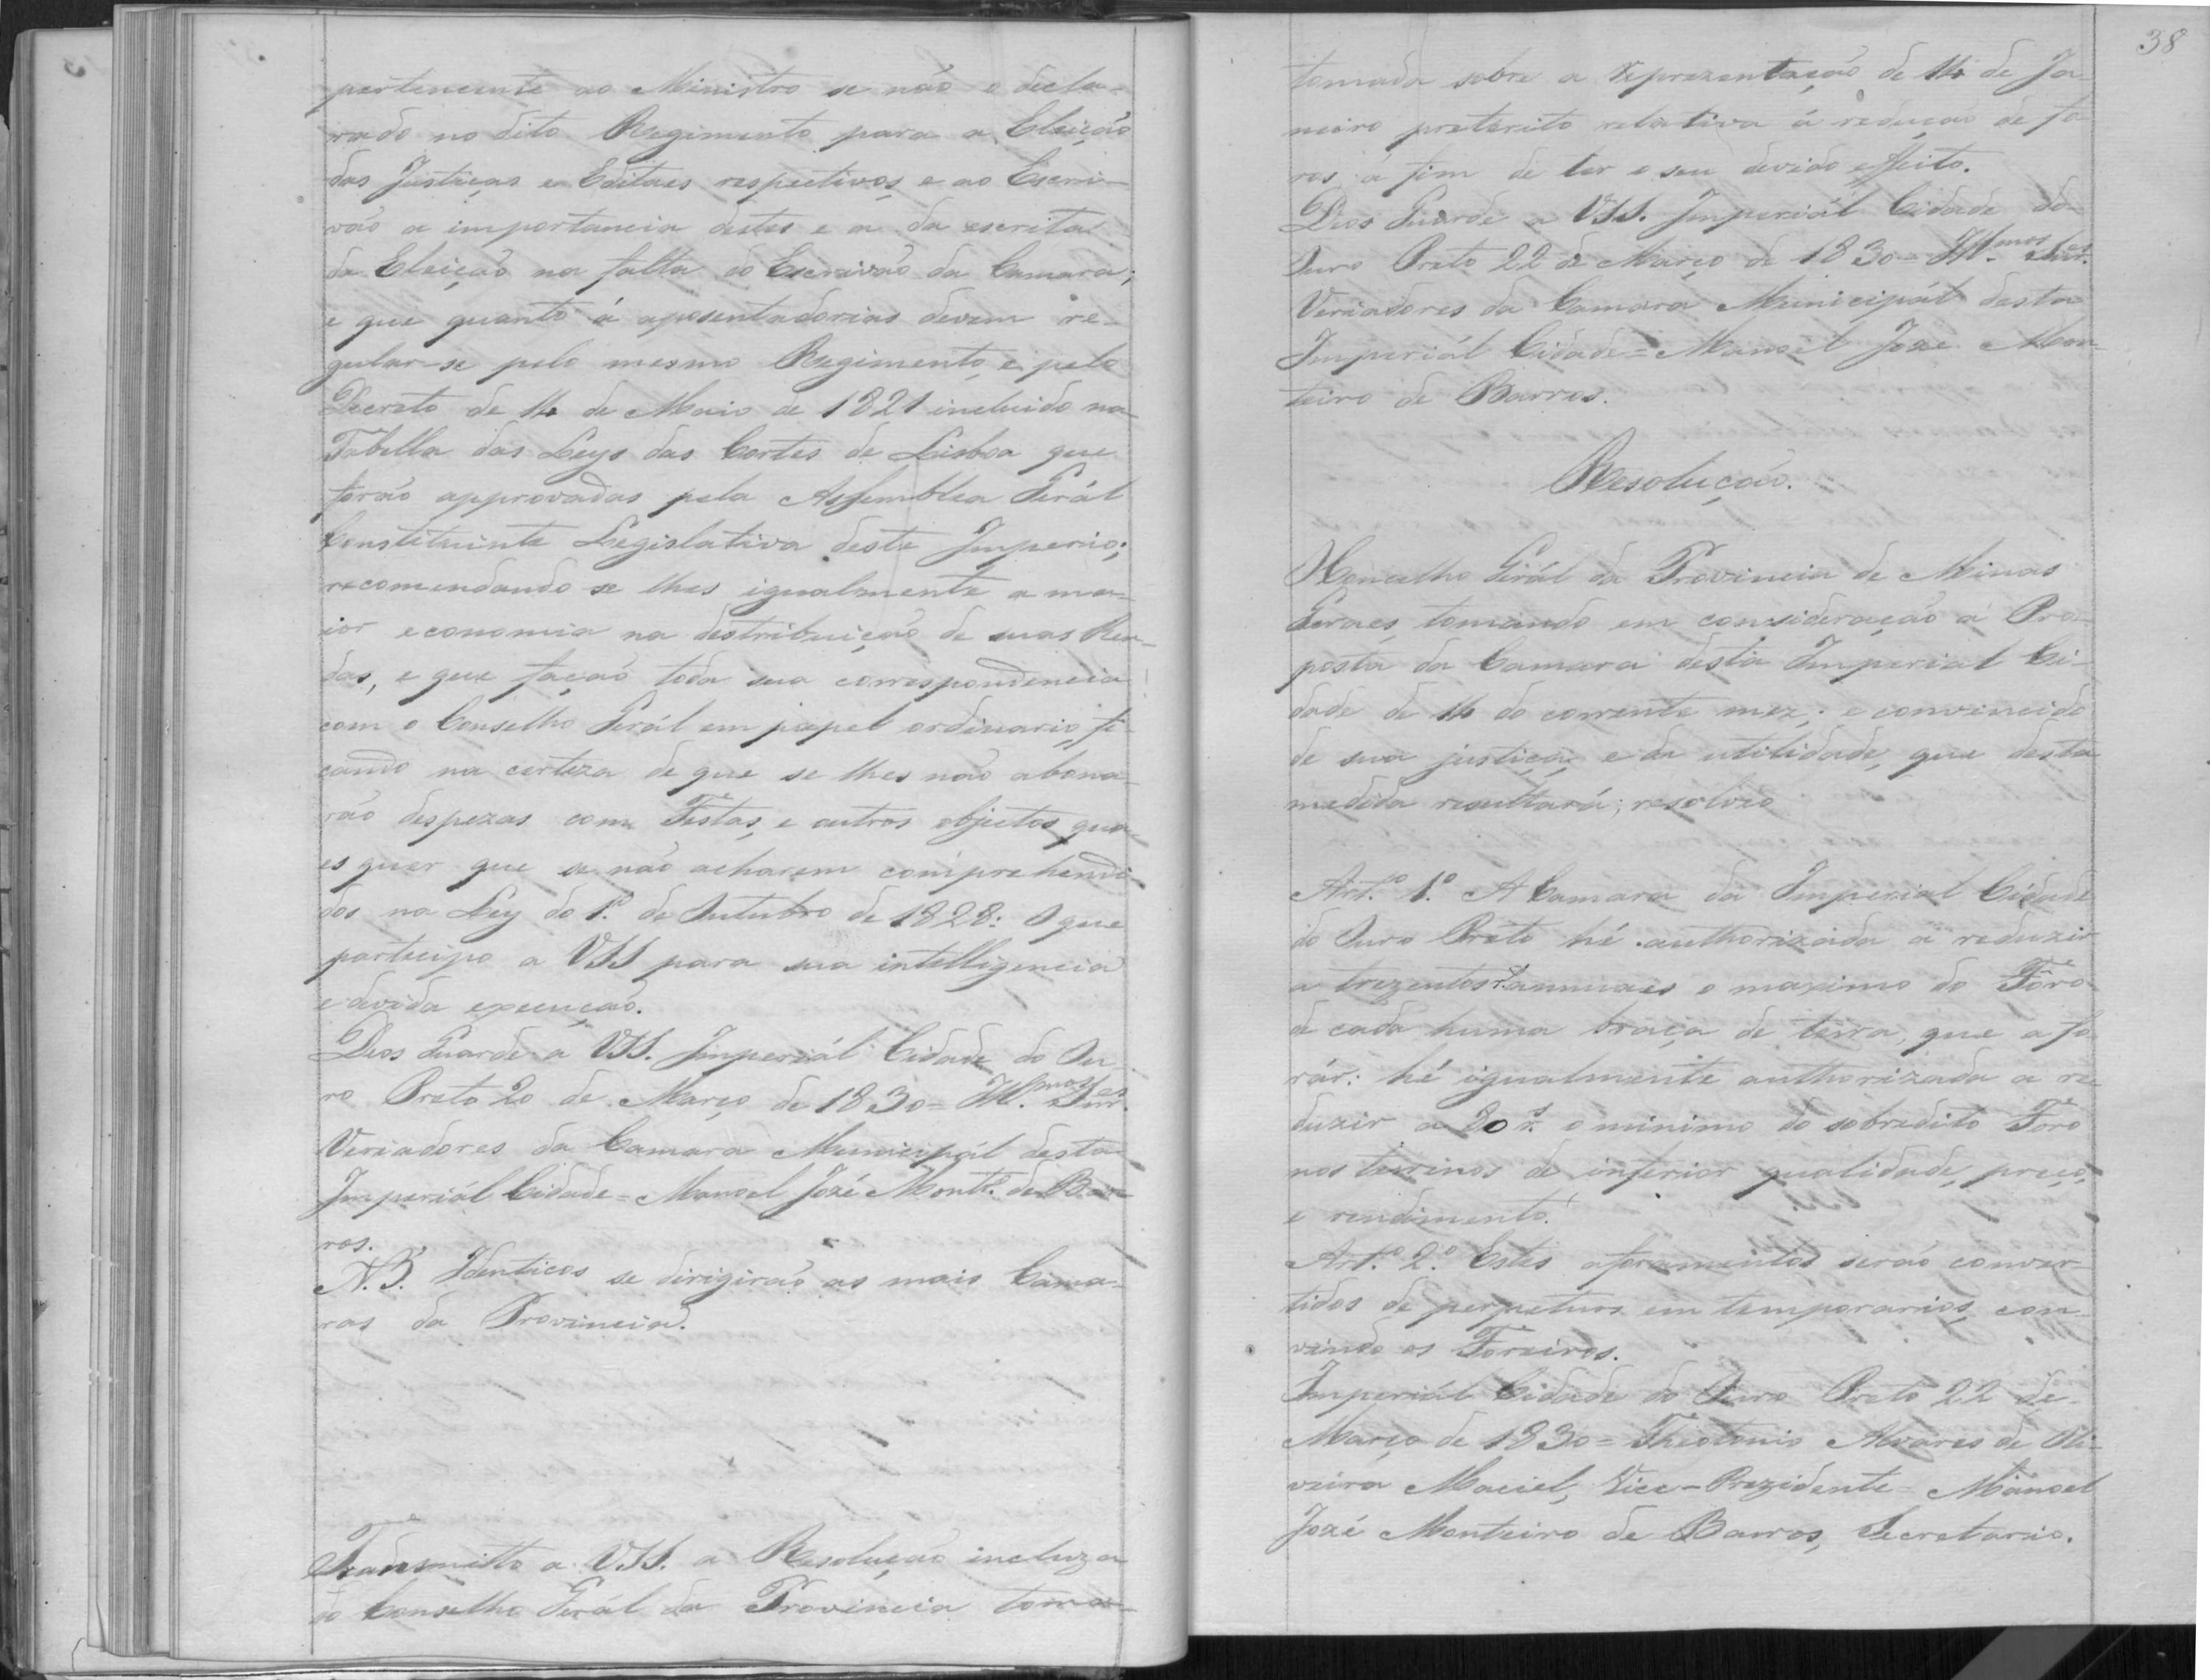 pertencente ao Ministro se não o decla-
rado no dito Regimento para a Eleição
das Justiças e Editaes respectivos, e ao Escri-
vão a importancia destes e a da escrita
da Eleição na falta do Escrivão da Camara;
e que quanto á aposentadorias devem re-
gular-se pelo mesmo Regimento, e pelo
Decreto de 14 de Maio de 1821 incluido na
Tabella das Leys das Cortes de Lisboa que
forão approvadas pela Assemblea Gerál
Constituinte Legislativa deste Imperio;
recomendando se lhes igualmente a ma-
ior economia na destribuição de suas Ren-
das, e que fação toda sua correspondencia
com o Conselho Gerál em papel ordinario, fi-
cando na certeza de que se lhes não abona-
rão despezas com Festas, e outros objectos qua-
es quer que se não acharem comprehendi-
dos na Ley do 1.º de Outubro de 1828: O que
participo a VSS para sua intelligencia
e devida execução.
Deos Guarde a VSS. Imperiál Cidade do Ou-
ro Preto 20 de Março de 1830 = Ill.mos Snr.es
Veriadores da Camara Municipál desta
Imperiál Cidade = Manoel José Montr.º de Bar-
ros.
N.B. Identicos se dirigirão as mais Cama-
ras da Provincia.
Transmitto a VSS. a Resolução incluza
do Conselho Gerál da Provincia toma-
38
tomada sobre a reprezentação de 14 de Ja-
neiro preterito relativa á redução de fo-
ros á fim de ter o seu devido effeito.
Deos Guarde a VSS. Imperiál Cidade do
Ouro Preto 22 de Março de 1830 = Ill.mos Snr.es
Veriadores da Camara Municipál desta
Imperiál Cidade = Manoel Joze Mon-
teiro de Barros.
Resolução.
O Concelho Gerál da Provincia de Minas
Geraes, tomando em consideração a Pro-
posta da Camara desta Imperial Ci-
dade de 14 do corrente mez; e convencido
de sua justiça, e da utilidade, que desta
medida resultará; resolveo
Art.º 1.º A Camara da Imperial Cidade
do Ouro Preto hé authorizada a reduzir
a trezentos r.s annuaes o maximo do Fôro
de cada huma braça de terra, que afo-
rár: hé igualmente authorizada a re-
duzir a 20 r.s o minimo do sobredito Foro
nos terrinos de inferior qualidade, preço,
e rendimento.
Art.º 2.º Estes aforamentos serão conver-
tidos de perpetuos em temporarios, con-
vindo os Foreiros.
Imperiál Cidade do Ouro Preto 22 de
Março de 1830 = Theotonio Alvares de Oli-
veira Maciel, Vice-Prezidente = Manoel
Jozé Monteiro de Barros, Secretario.